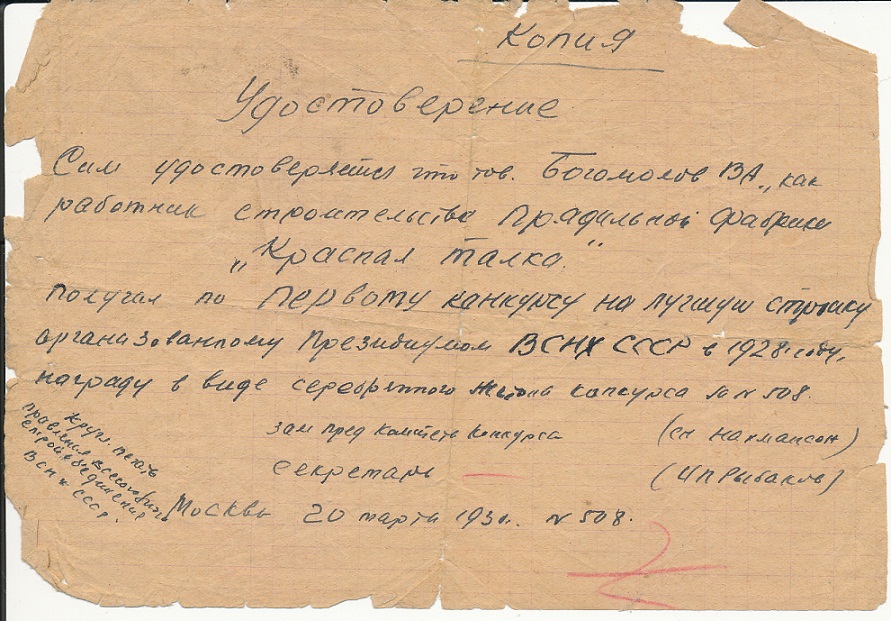 Копия
Удостоверение
Сим удостоверяется что тов. Богомолов ВА., как
работник строительства Прядильной фабрики
„Красная талка."
получал по Первому конкурсу на лучшую стройку
организованному Президиумом ВСНХ СССР в 1928 году,
награду в виде серебрянного жетона конкурса за № 508.
зам пред Комитета Конкурса (сп Нахмансон)
Секретарь — (ИП Рыбаков)
кругл. печать
правления всесоюзного
стройобъединения
ВСНХ СССР.
Москва 20 марта 193 г. № 508.